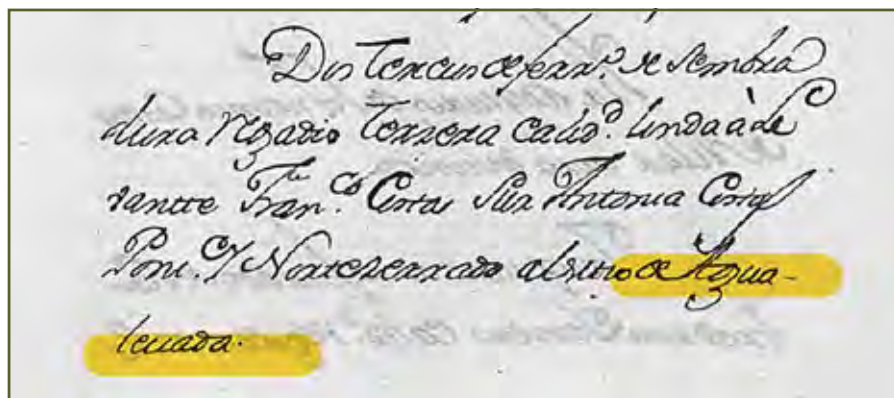 Dos tercios de ferr.º de sembra
dura regadio terzera calid.d linda à le
vantte Fran.co Costa Sur Antonia Costa
Pon.te y Norte zerrado al sitio de Agua-
leuada.